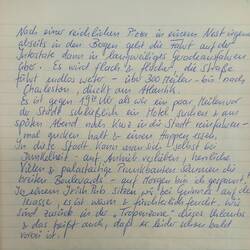 Nach einer reichlichen Pizza in einem Nest irgendwo
abseits in den Bergen geht die Fahrt auf der
Interstate dann in langweiliges geradeausfahren
über. Es wird flach & flacher, die Straße
führt endlos weiter - über 300 Meilen - bis nach
Charleston, direkt am Atlantik.
Es ist gegen 19 Uhr als wir ein paar Meilen vor
der Stadt schließlich ein Hotel suchen & am
späten Abend noch kurz in die Stadt reinfahren -
mal gucken halt & einen Happen essen.
In diese Stadt kann man sich selbst bei
Dunkelheit - auf Anhieb verlieben, herrliche
Villen & palastartige Prunkbauten säumen die
breiten Boulevards - auf morgen bin ich gespannt!
In einem Irish Pub sitzen wir bei Guinness auf der
Terasse, es ist warm & fürchterlich feucht. Wir
sind zurück in der „Tropenzone" dieses Urlaubs
& das heißt auch, daß er leider schon bald
vorbei ist!